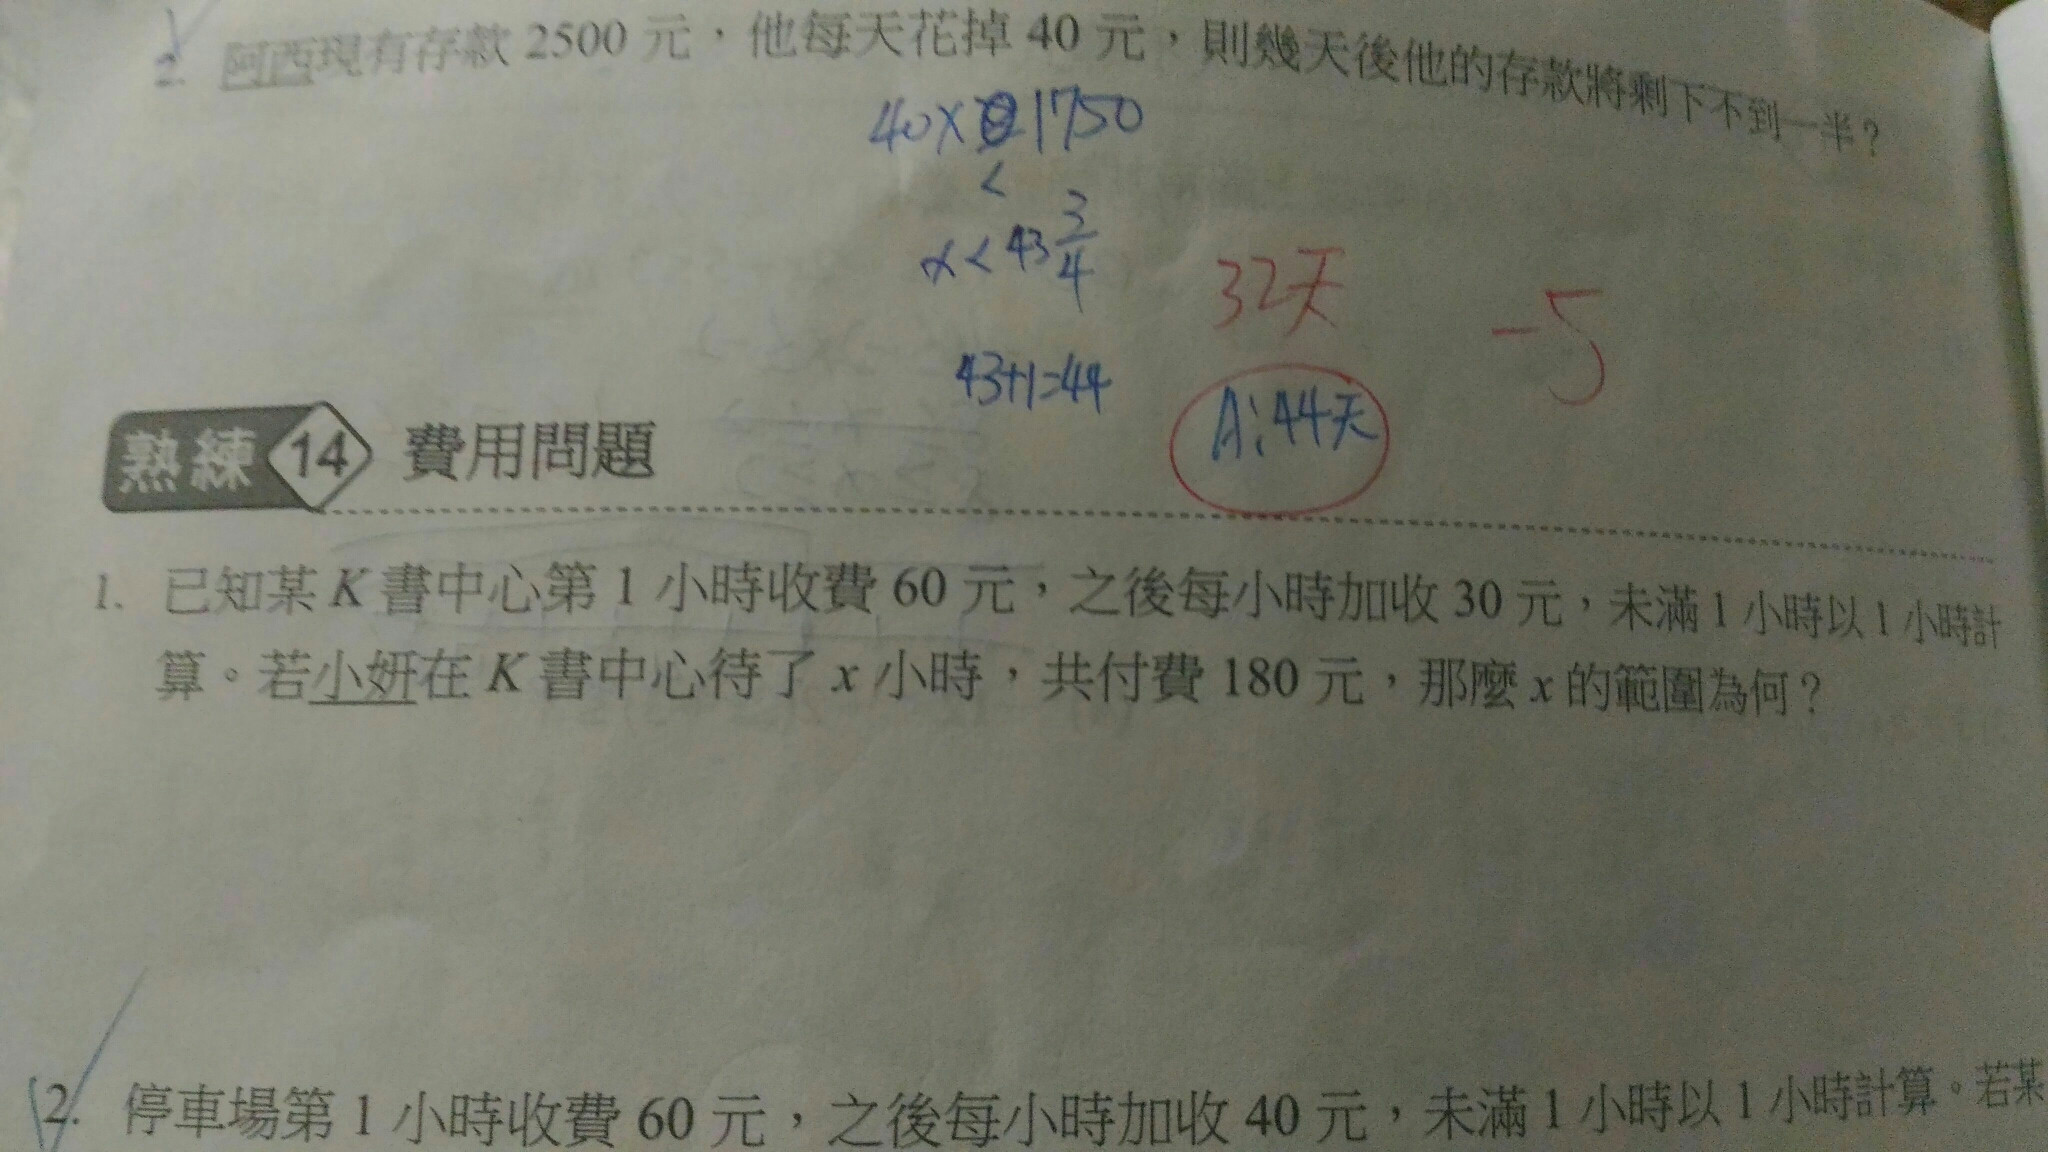 2. 阿西現有存款 2500 元，他每天花掉 40 元，則幾天後他的存款將剩下不到一半？
40x 1750
<
x < 43 3/4
32天
-5
43+1=44
A:44天
熟練 14 費用問題
1. 已知某 K 書中心第 1 小時收費 60 元，之後每小時加收 30 元，未滿 1 小時以 1 小時計
算。若小妍在 K 書中心待了 x 小時，共付費 180 元，那麼 x 的範圍為何？
2. 停車場第 1 小時收費 60 元，之後每小時加收 40 元，未滿 1 小時以 1 小時計算。若某